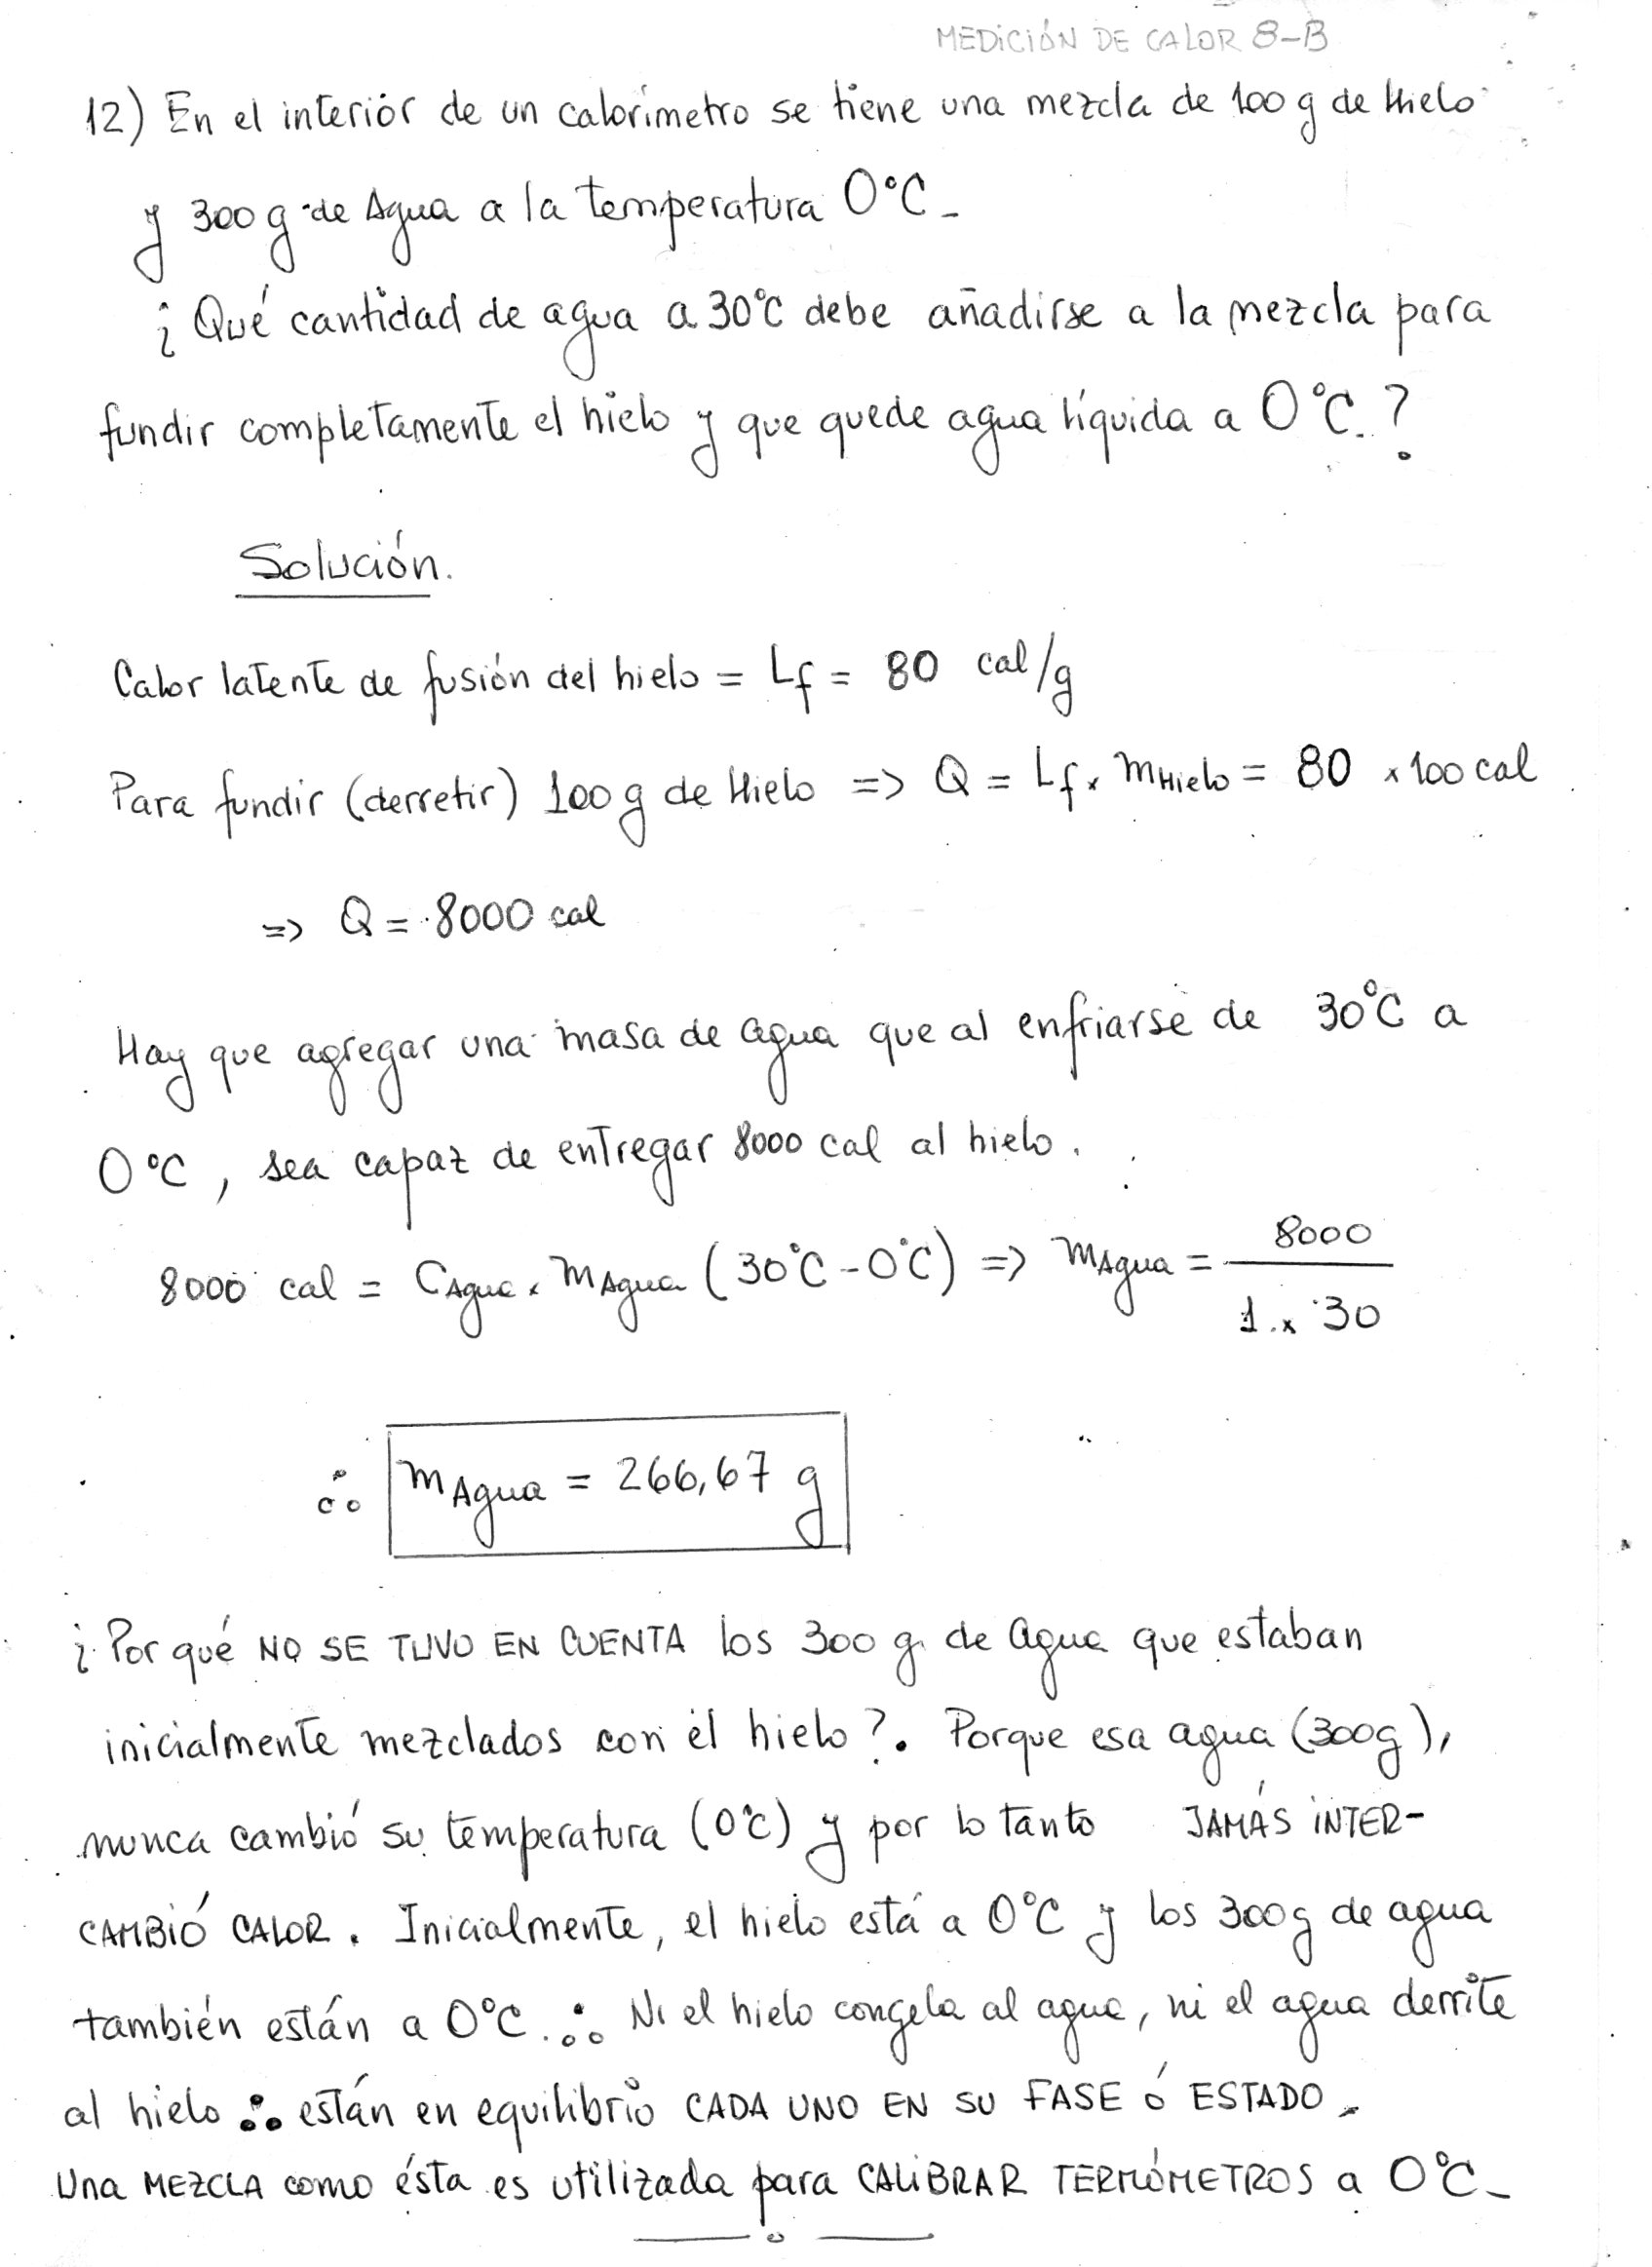 MEDICIÓN DE CALOR 8-B
12) En el interior de un calorímetro se tiene una mezcla de 100 g de Hielo
y 300 g de Agua a la temperatura 0°C-
¿Qué cantidad de agua a 30°C debe añadirse a la mezcla para
fundir completamente el hielo y que quede agua líquida a 0°C.?
Solución.
Calor latente de fusión del hielo = Lf = 80 cal/g
Para fundir (derretir) 100 g de Hielo => Q = Lf x mHielo = 80 x 100 cal
=> Q = 8000 cal
Hay que agregar una masa de agua que al enfriarse de 30°C a
0°C, sea capaz de entregar 8000 cal al hielo.
8000 cal = CAgua x mAgua (30°C - 0°C) => mAgua = 8000 / 1 x 30
∴ mAgua = 266,67 g
¿Por qué NO SE TUVO EN CUENTA los 300 g. de agua que estaban
inicialmente mezclados con el hielo?. Porque esa agua (300g),
nunca cambió su temperatura (0°C) y por lo tanto JAMÁS INTER-
CAMBIÓ CALOR. Inicialmente, el hielo está a 0°C y los 300g de agua
también están a 0°C. ∴ Ni el hielo congela al agua, ni el agua derrite
al hielo ∴ están en equilibrio CADA UNO EN SU FASE ó ESTADO.
Una MEZCLA como ésta es utilizada para CALIBRAR TERMÓMETROS a 0°C-